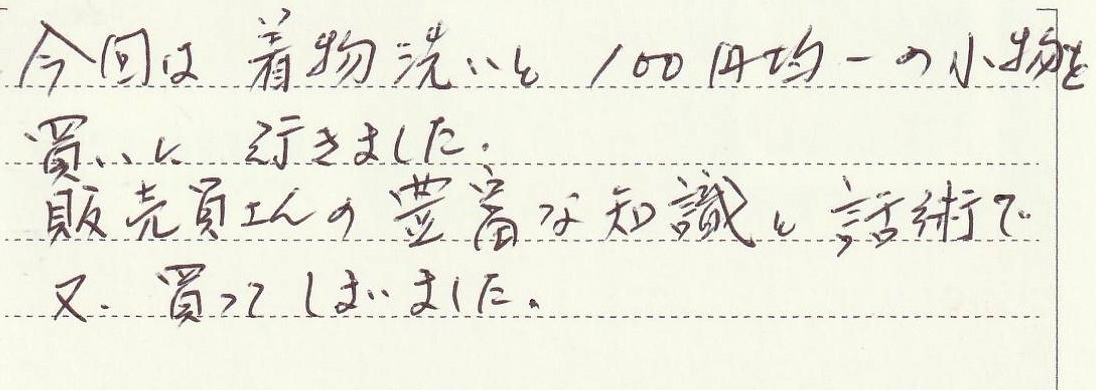 今回は着物洗いと100円均一の小物を
買いに行きました。
販売員さんの豊富な知識と話術で
又、買ってしまいました。